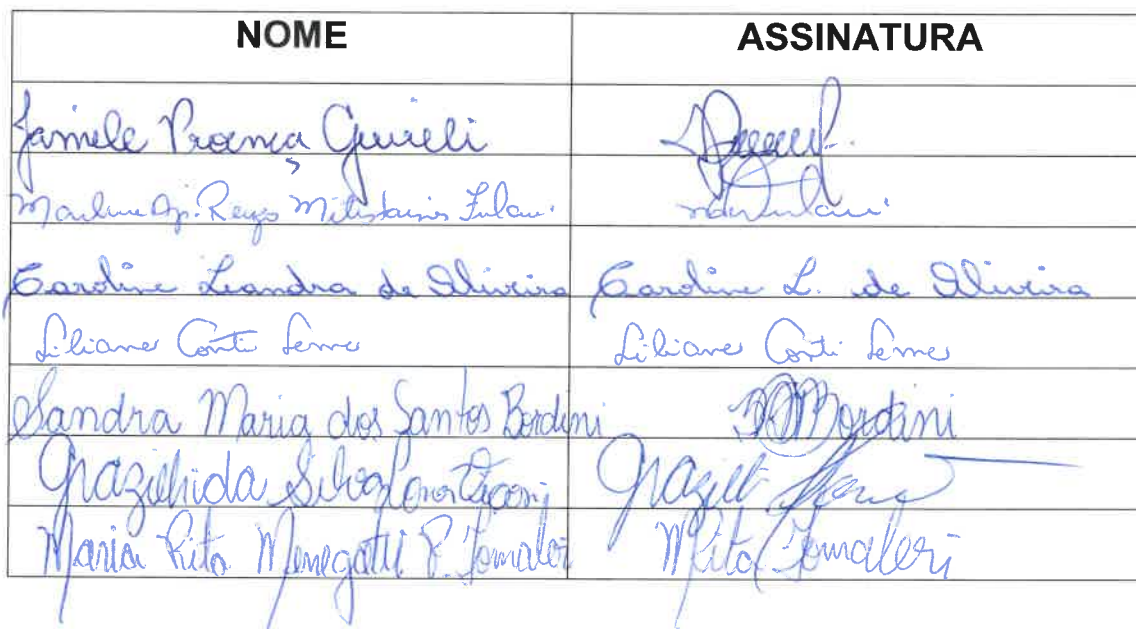 NOME ASSINATURA
Jamile Proença
Ap. Milistaines Fulani
Caroline Leandra de Oliveira Caroline L. de Oliveira
Liliane Conti Leme Liliane Conti Leme
Sandra Maria dos Santos Bordini Bordini
Grazielhida Silva
Maria Rita Menegatti P. Tomaleri MRita Tomaleri